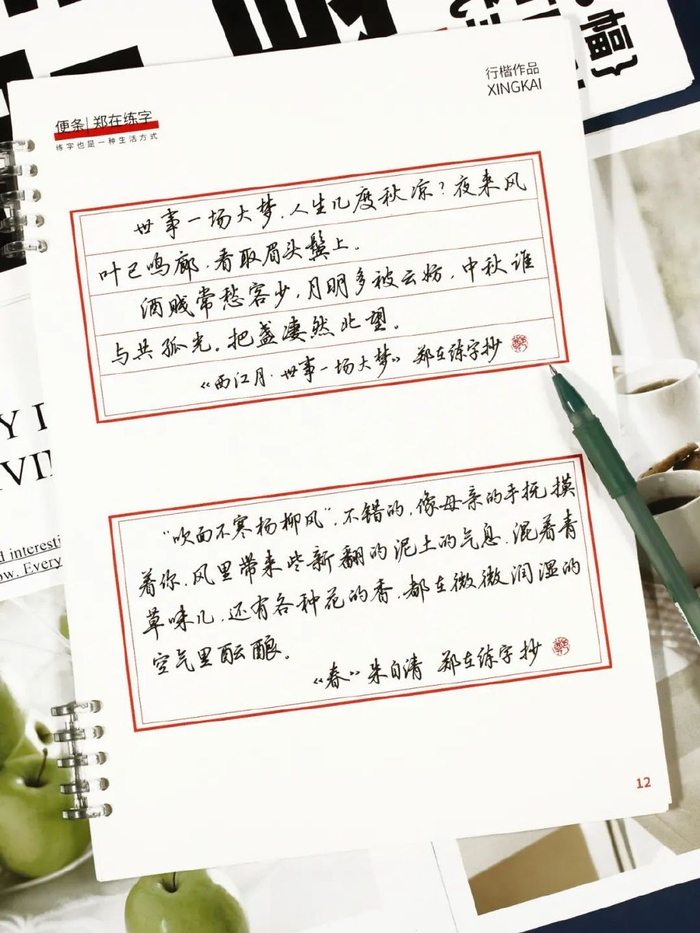 幅
行楷作品
XINGKAI
便条|郑在练字
练字也是一种生活方式
世事一场大梦，人生几度秋凉？夜来风
叶已鸣廊，看取眉头鬓上。
酒贱常愁客少，月明多被云妨，中秋谁
与共孤光，把盏凄然北望。
《西江月·世事一场大梦》 郑在练字抄
"吹面不寒杨柳风"，不错的，像母亲的手抚摸
着你，风里带来些新翻的泥土的气息，混着青
草味儿，还有各种花的香，都在微微润湿的
空气里酝酿。
《春》朱自清 郑在练字抄
Y I
VI
d interesti
ow. Every
12